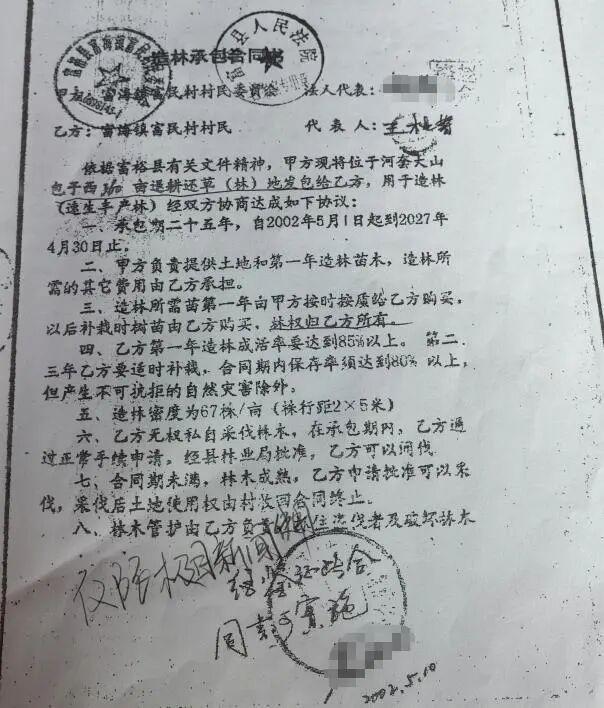 造林承包合同书
富裕县人民法院
甲方：富海镇富民村村民委员会 法人代表：
乙方：富海镇富民村村民 代表人：
依据富裕县有关文件精神，甲方现将位于河套大山
包子西360亩退耕还草（林）地发包给乙方，用于造林
（速生丰产林）经双方协商达成如下协议：
一、承包期二十五年，自2002年5月1日起到2027年
4月30日止。
二、甲方负责提供土地和第一年造林苗木，造林所
需的其它费用由乙方承担。
三、造林所需苗第一年由甲方按时按质给乙方购买，
以后补栽时树苗由乙方购买，林权归乙方所有。
四、乙方第一年造林成活率要达到85%以上。第二、
三年乙方要适时补栽，合同期内保存率须达到80%以上，
但产生不可抗拒的自然灾害除外。
五、造林密度为67株/亩（株行距2×5米）
六、乙方无权私自采伐林木，在承包期内，乙方通
过正常手续申请，经县林业局批准，乙方可以间伐
七、合同期未满，林木成熟，乙方申请批准可以采
伐，采伐后土地使用权由村收回合同终止。
八、林木管护由乙方负责 住盗伐者及破坏林木
仅限极目新闻
同意实施
2002.5.10